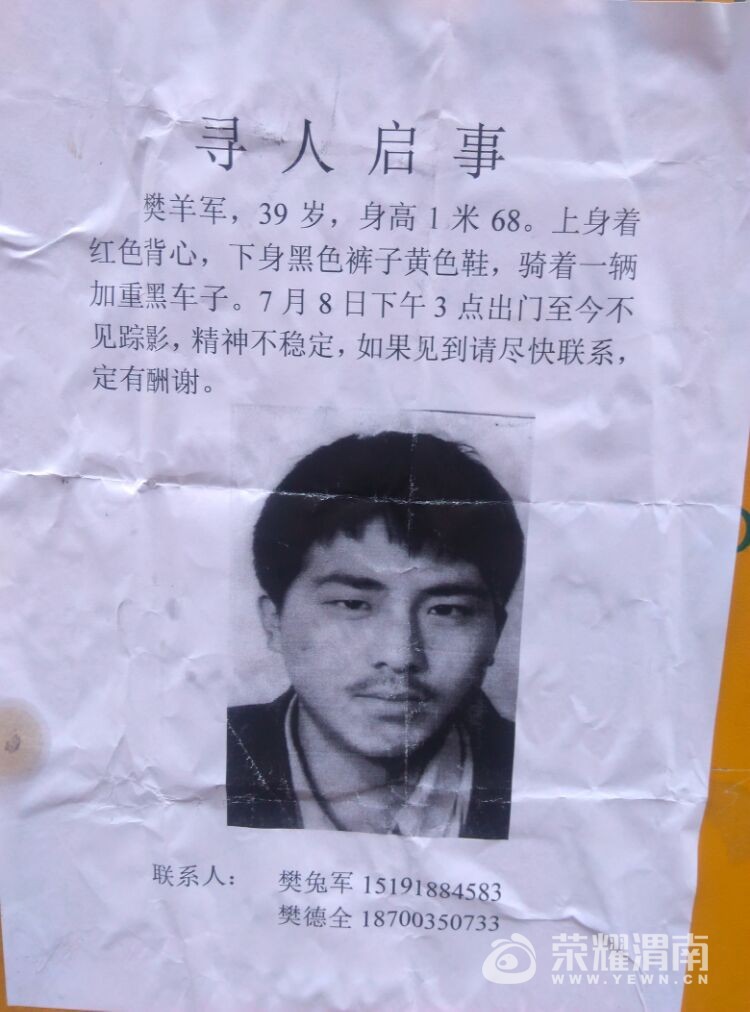 寻人启事
樊羊军，39 岁，身高 1 米 68。上身着
红色背心，下身黑色裤子黄色鞋，骑着一辆
加重黑车子。7 月 8 日下午 3 点出门至今不
见踪影，精神不稳定，如果见到请尽快联系，
定有酬谢。
联系人： 樊兔军 15191884583
樊德全 18700350733
荣耀渭南
WWW.YEWN.CN